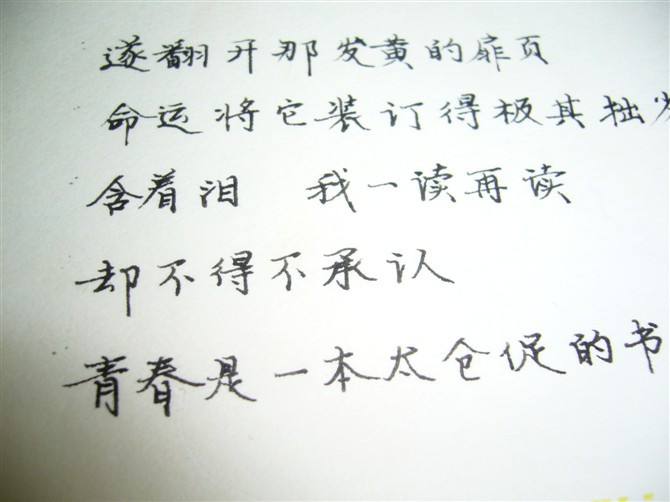 遂翻开那发黄的扉页
命运将它装订得极其拙劣
含着泪 我一读再读
却不得不承认
青春是一本太仓促的书